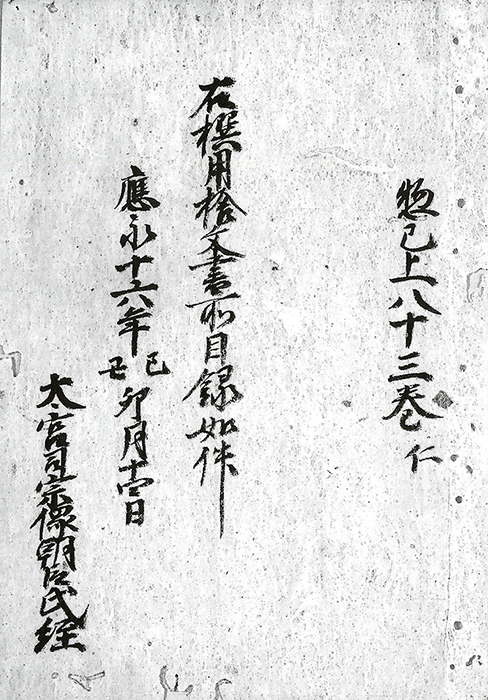 惣已上八十三巻仁
右撰用捨文書之目録如件
應永十六年己丑卯月十四日
大宮司宗像朝臣氏經